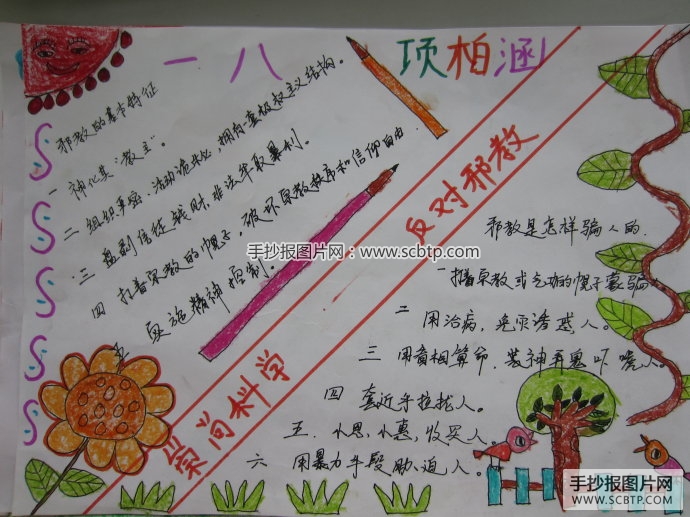 一八
项柏涵
邪教的基本特征
一 神化其“教主”。
二 组织严密,活动诡秘,拥有一套极权主义结构。
三 盘剥信徒钱财,非法牟取暴利。
四 打着宗教的幌子,破坏宗教秩序和信仰自由
五 实施精神控制。
崇尚科学
反对邪教
邪教是怎样骗人的.
一 打着宗教或气功的幌子蒙骗
二 用治病,免灾诱惑人。
三 用看相算命,装神弄鬼吓唬人。
四 套近乎拉拢人。
五.小恩,小惠,收买人。
六 用暴力手段胁迫人。
手抄报图片网:www.scbtp.com
手抄报图片网
WWW.SCBTP.COM